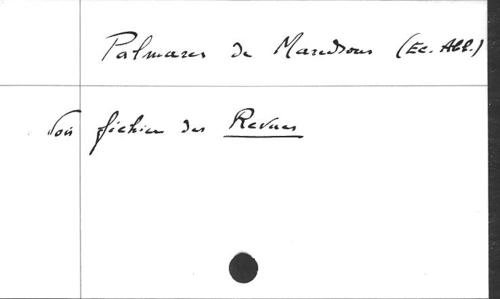 Palmares de Maredsous (Ec. Abb.)
Voir fichier des Revues